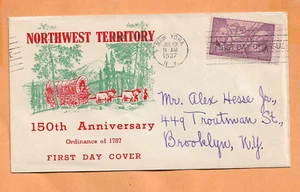 NORTHWEST TERRITORY
150th Anniversary
Ordinance of 1787
FIRST DAY COVER
NEW YORK
JUL 13
1937
N.Y.
Mr. Alex Hesse Jr.,
449 Troutman St.,
Brooklyn, N.Y.